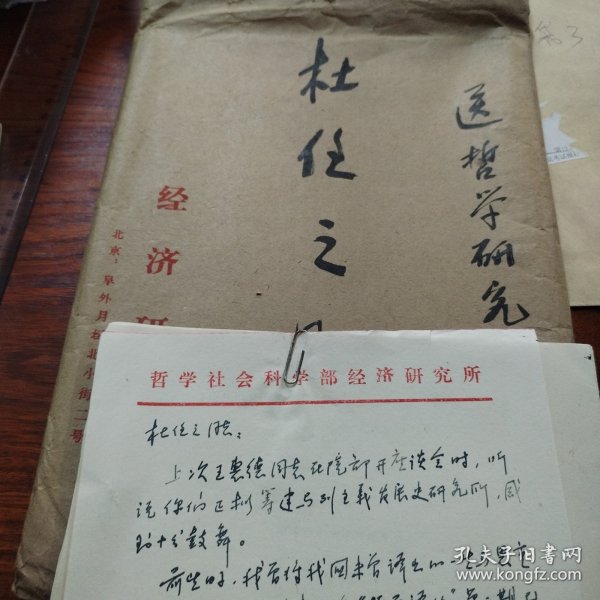 送哲学研究
杜任之同
经济研
北京：阜外月坛北小街二号
哲学社会科学部经济研究所
杜任之同志：
上次王惠德同志在院部开座谈会时，听
说你们正拟筹建马列主义发展史研究所，感
到十分鼓舞。
前些时，我曾将我国未曾译出的一些
孔夫子旧书网
www.kongfz.com